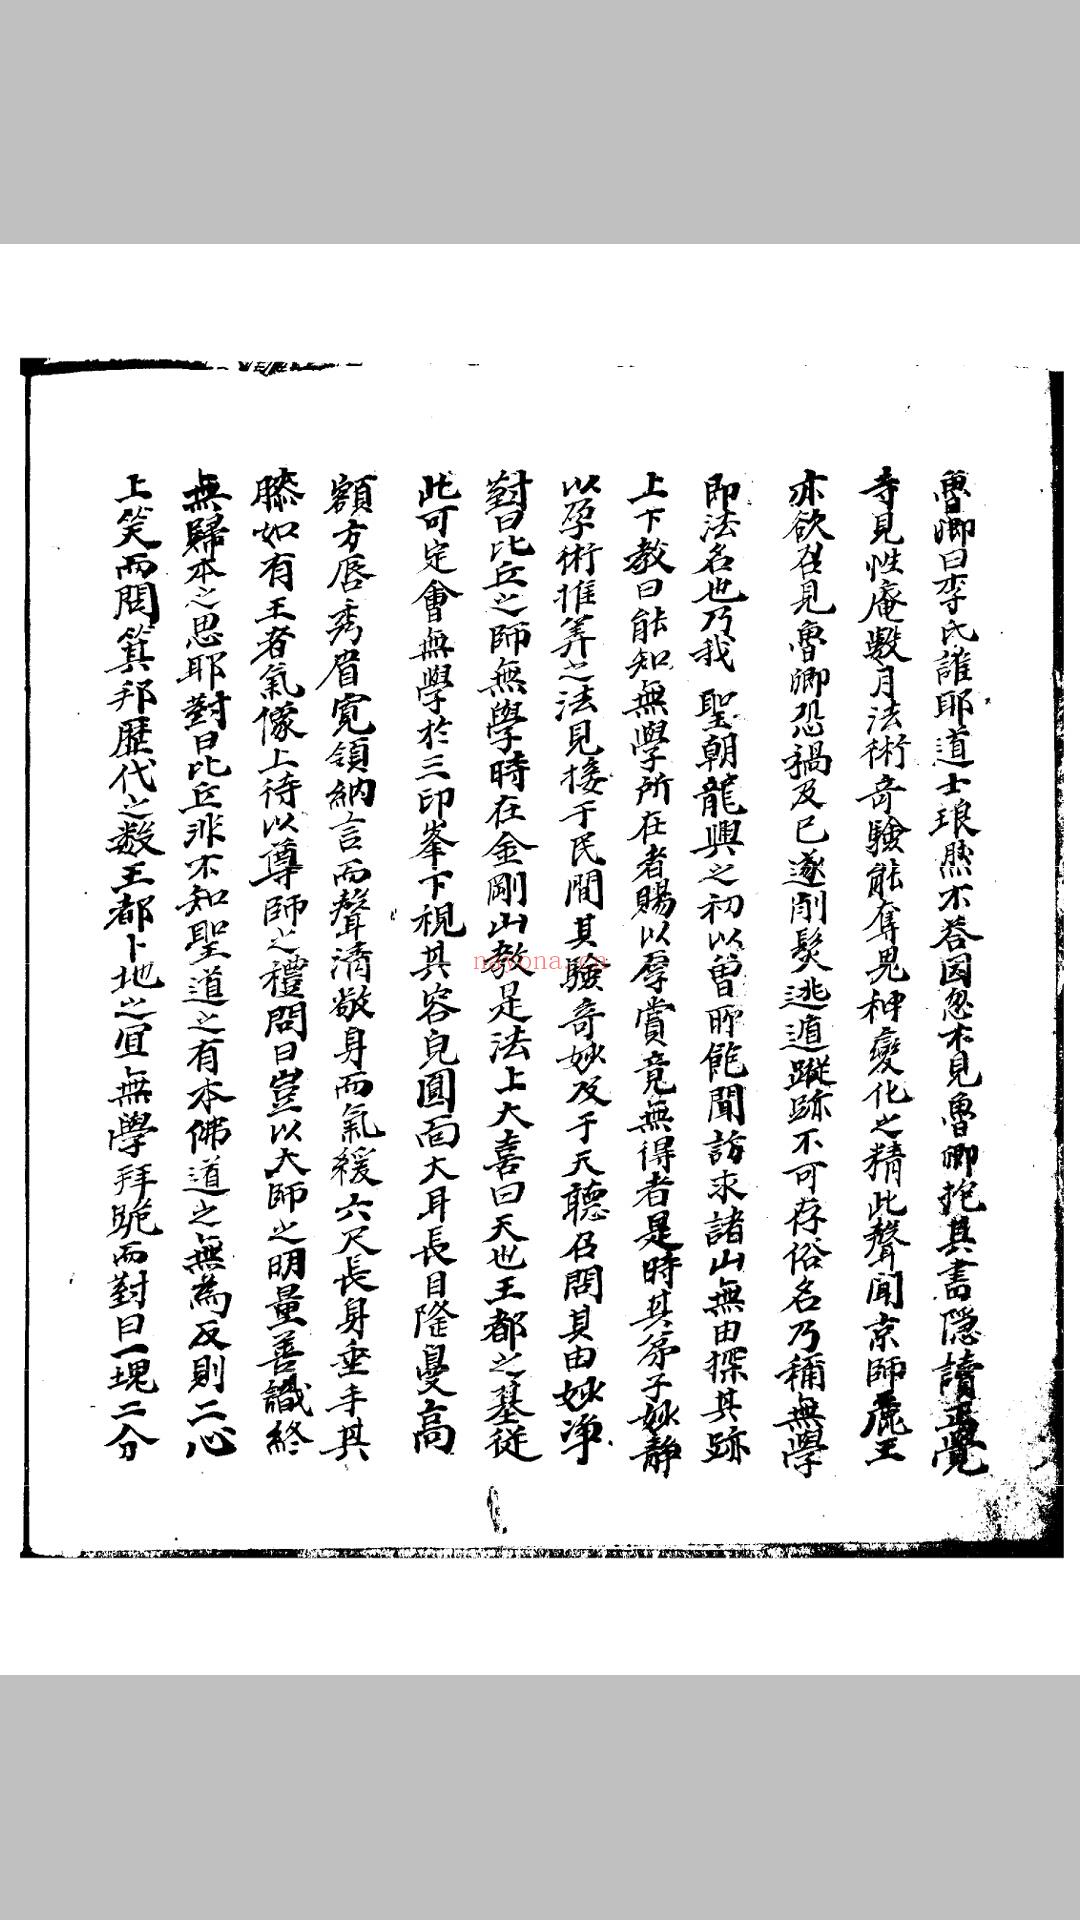 魯卿曰李氏誰耶道士琅然不答因忽不見魯卿抱其書隐讀正覺
寺見性庵數月法術奇驗能奪鬼神變化之精此聲聞京師麗王
亦欲召見魯卿恐禍及已遂削髮逃遁蹤跡不可存俗名乃稱無學
即法名也乃我 聖朝龍興之初以曽所飽聞訪求諸山無由探其跡
上下教曰能知無學所在者賜以厚賞竟無得者是時其弟子妙静
以孕術推筭之法見接于民間其驗奇妙及于天聽召問其由妙净
對曰比丘之師無學時在金剛山教是法上大喜曰天也王都之基従
此可定會無學於三印峯下視其容皃圓面大耳長目隆
高
額方唇秀眉寛領納言而聲清敞身而氣緩六尺長身垂手其
膝如有王者氣像上待以尊師之禮問曰豈以大師之明量善識終
無歸本之思耶對曰比丘非不知聖道之有本佛道之無為反則二心
上笑而問箕邦歴代之數王都卜地之宜無學拜跪而對曰一塊二分
nayona.cn